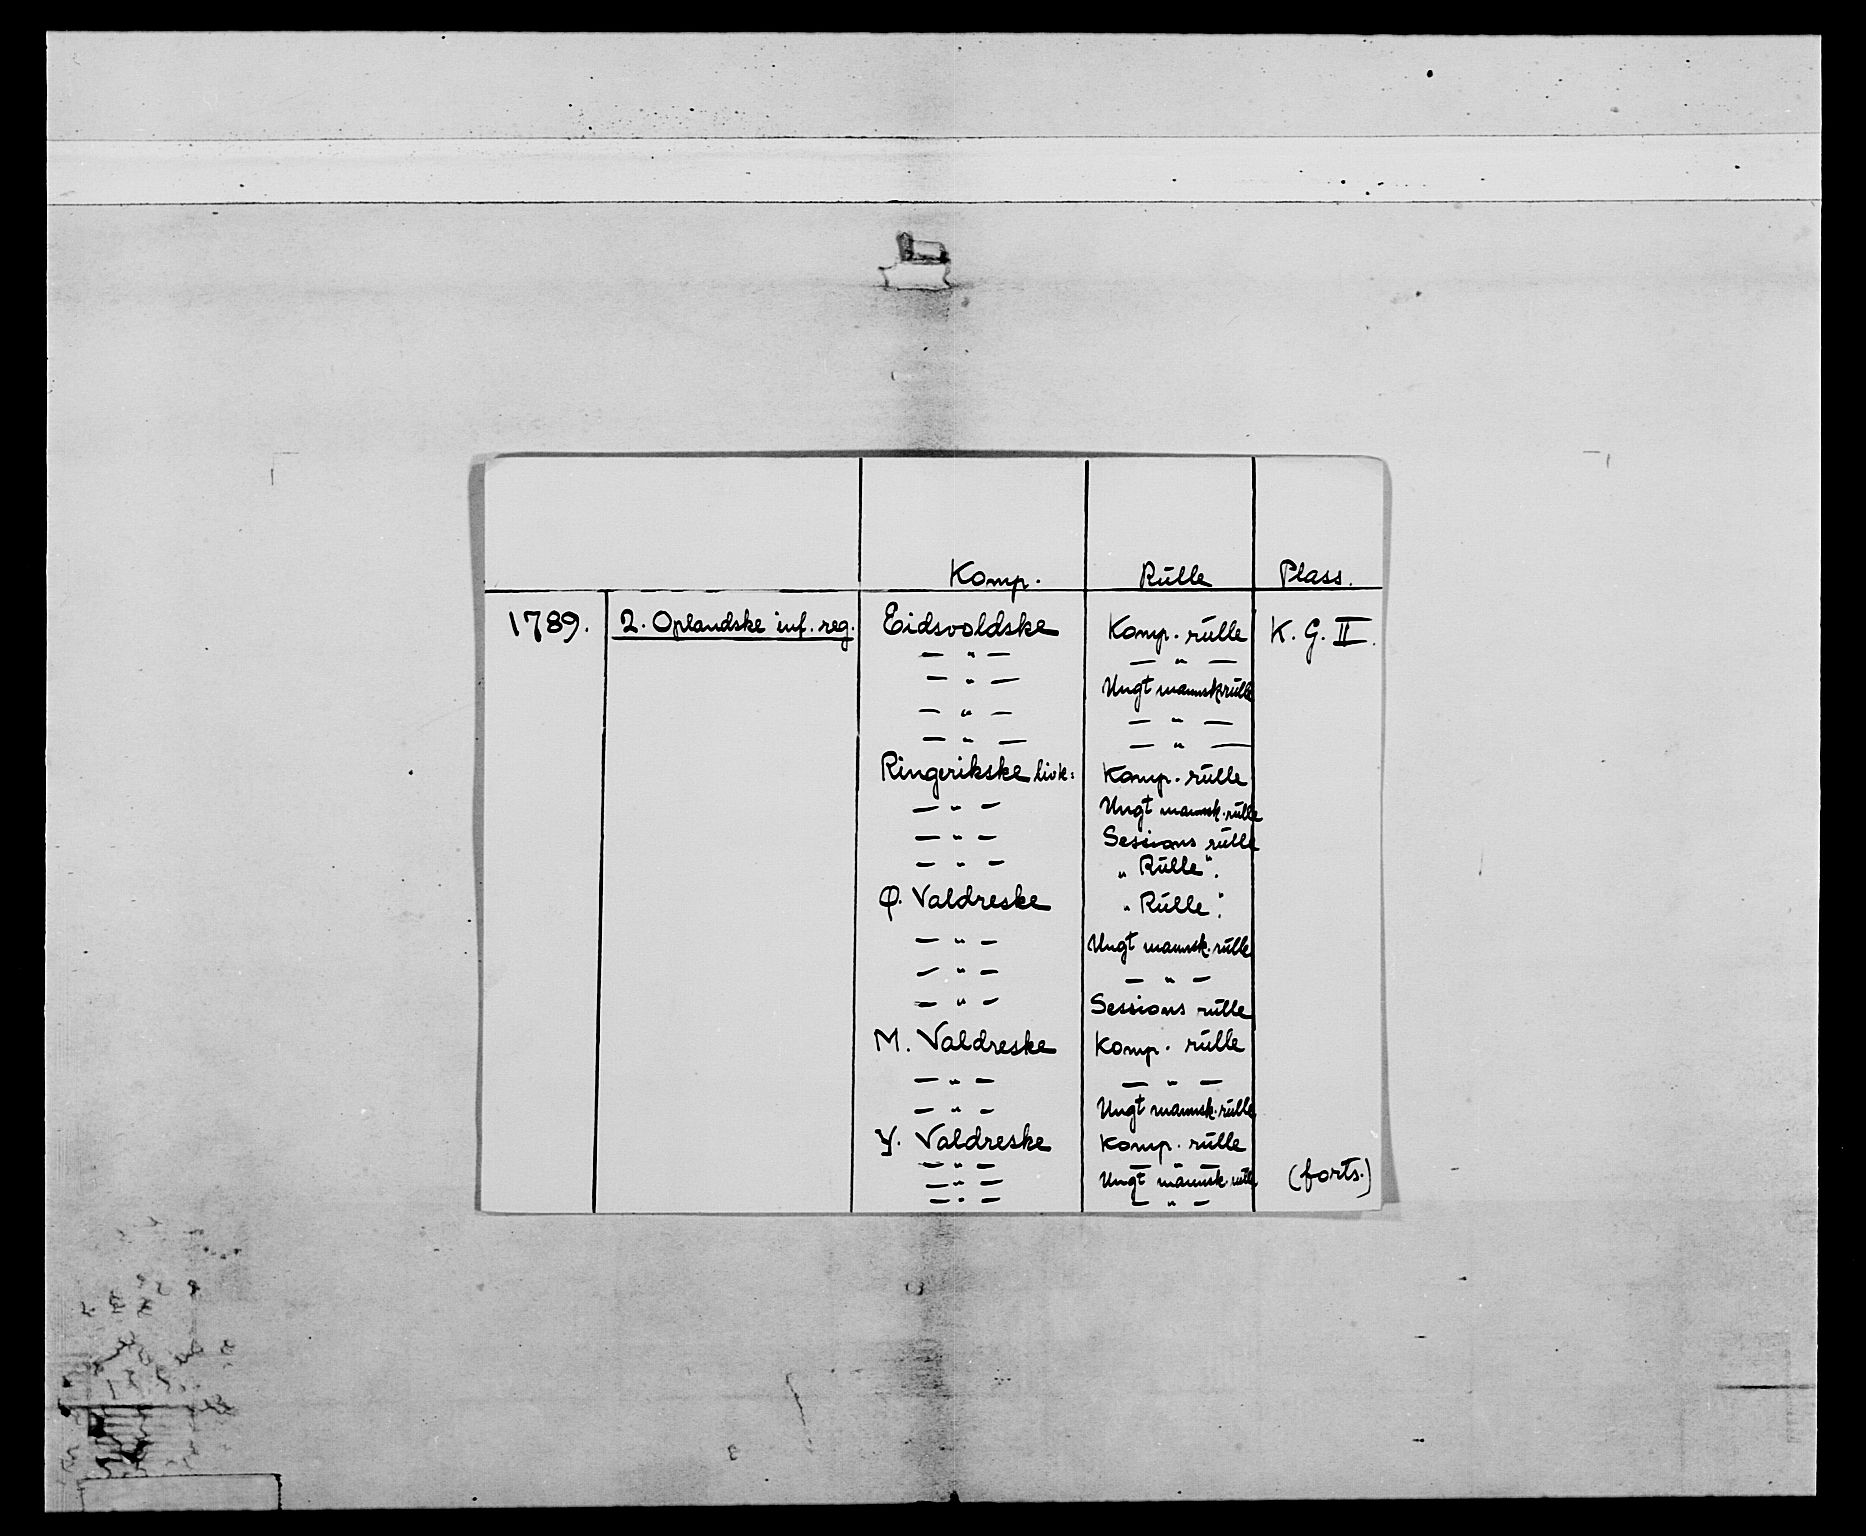 Komp. Rülle Plass.
1789. 2. Oplandske inf. reg. Eidsvoldske Komp. rülle K. G. II.
— " — — " —
— " — Ungt mannsk rülle
— " — — " —
— " — — " —
Ringerikske livk: Komp. rülle
— " — Ungt mannsk. rülle
— " — Sessions rülle
— " — „Rülle".
Ø. Valdreske „Rülle".
— " — Ungt mannsk. rülle
— " — — " —
— " — Sessions rülle
M. Valdreske Komp. rülle
— " — — " —
— " — Ungt mannsk. rülle
Y. Valdreske Komp. rülle
— " — — " —
— " — Ungt mannsk. rülle (forts.)
— " — — " —